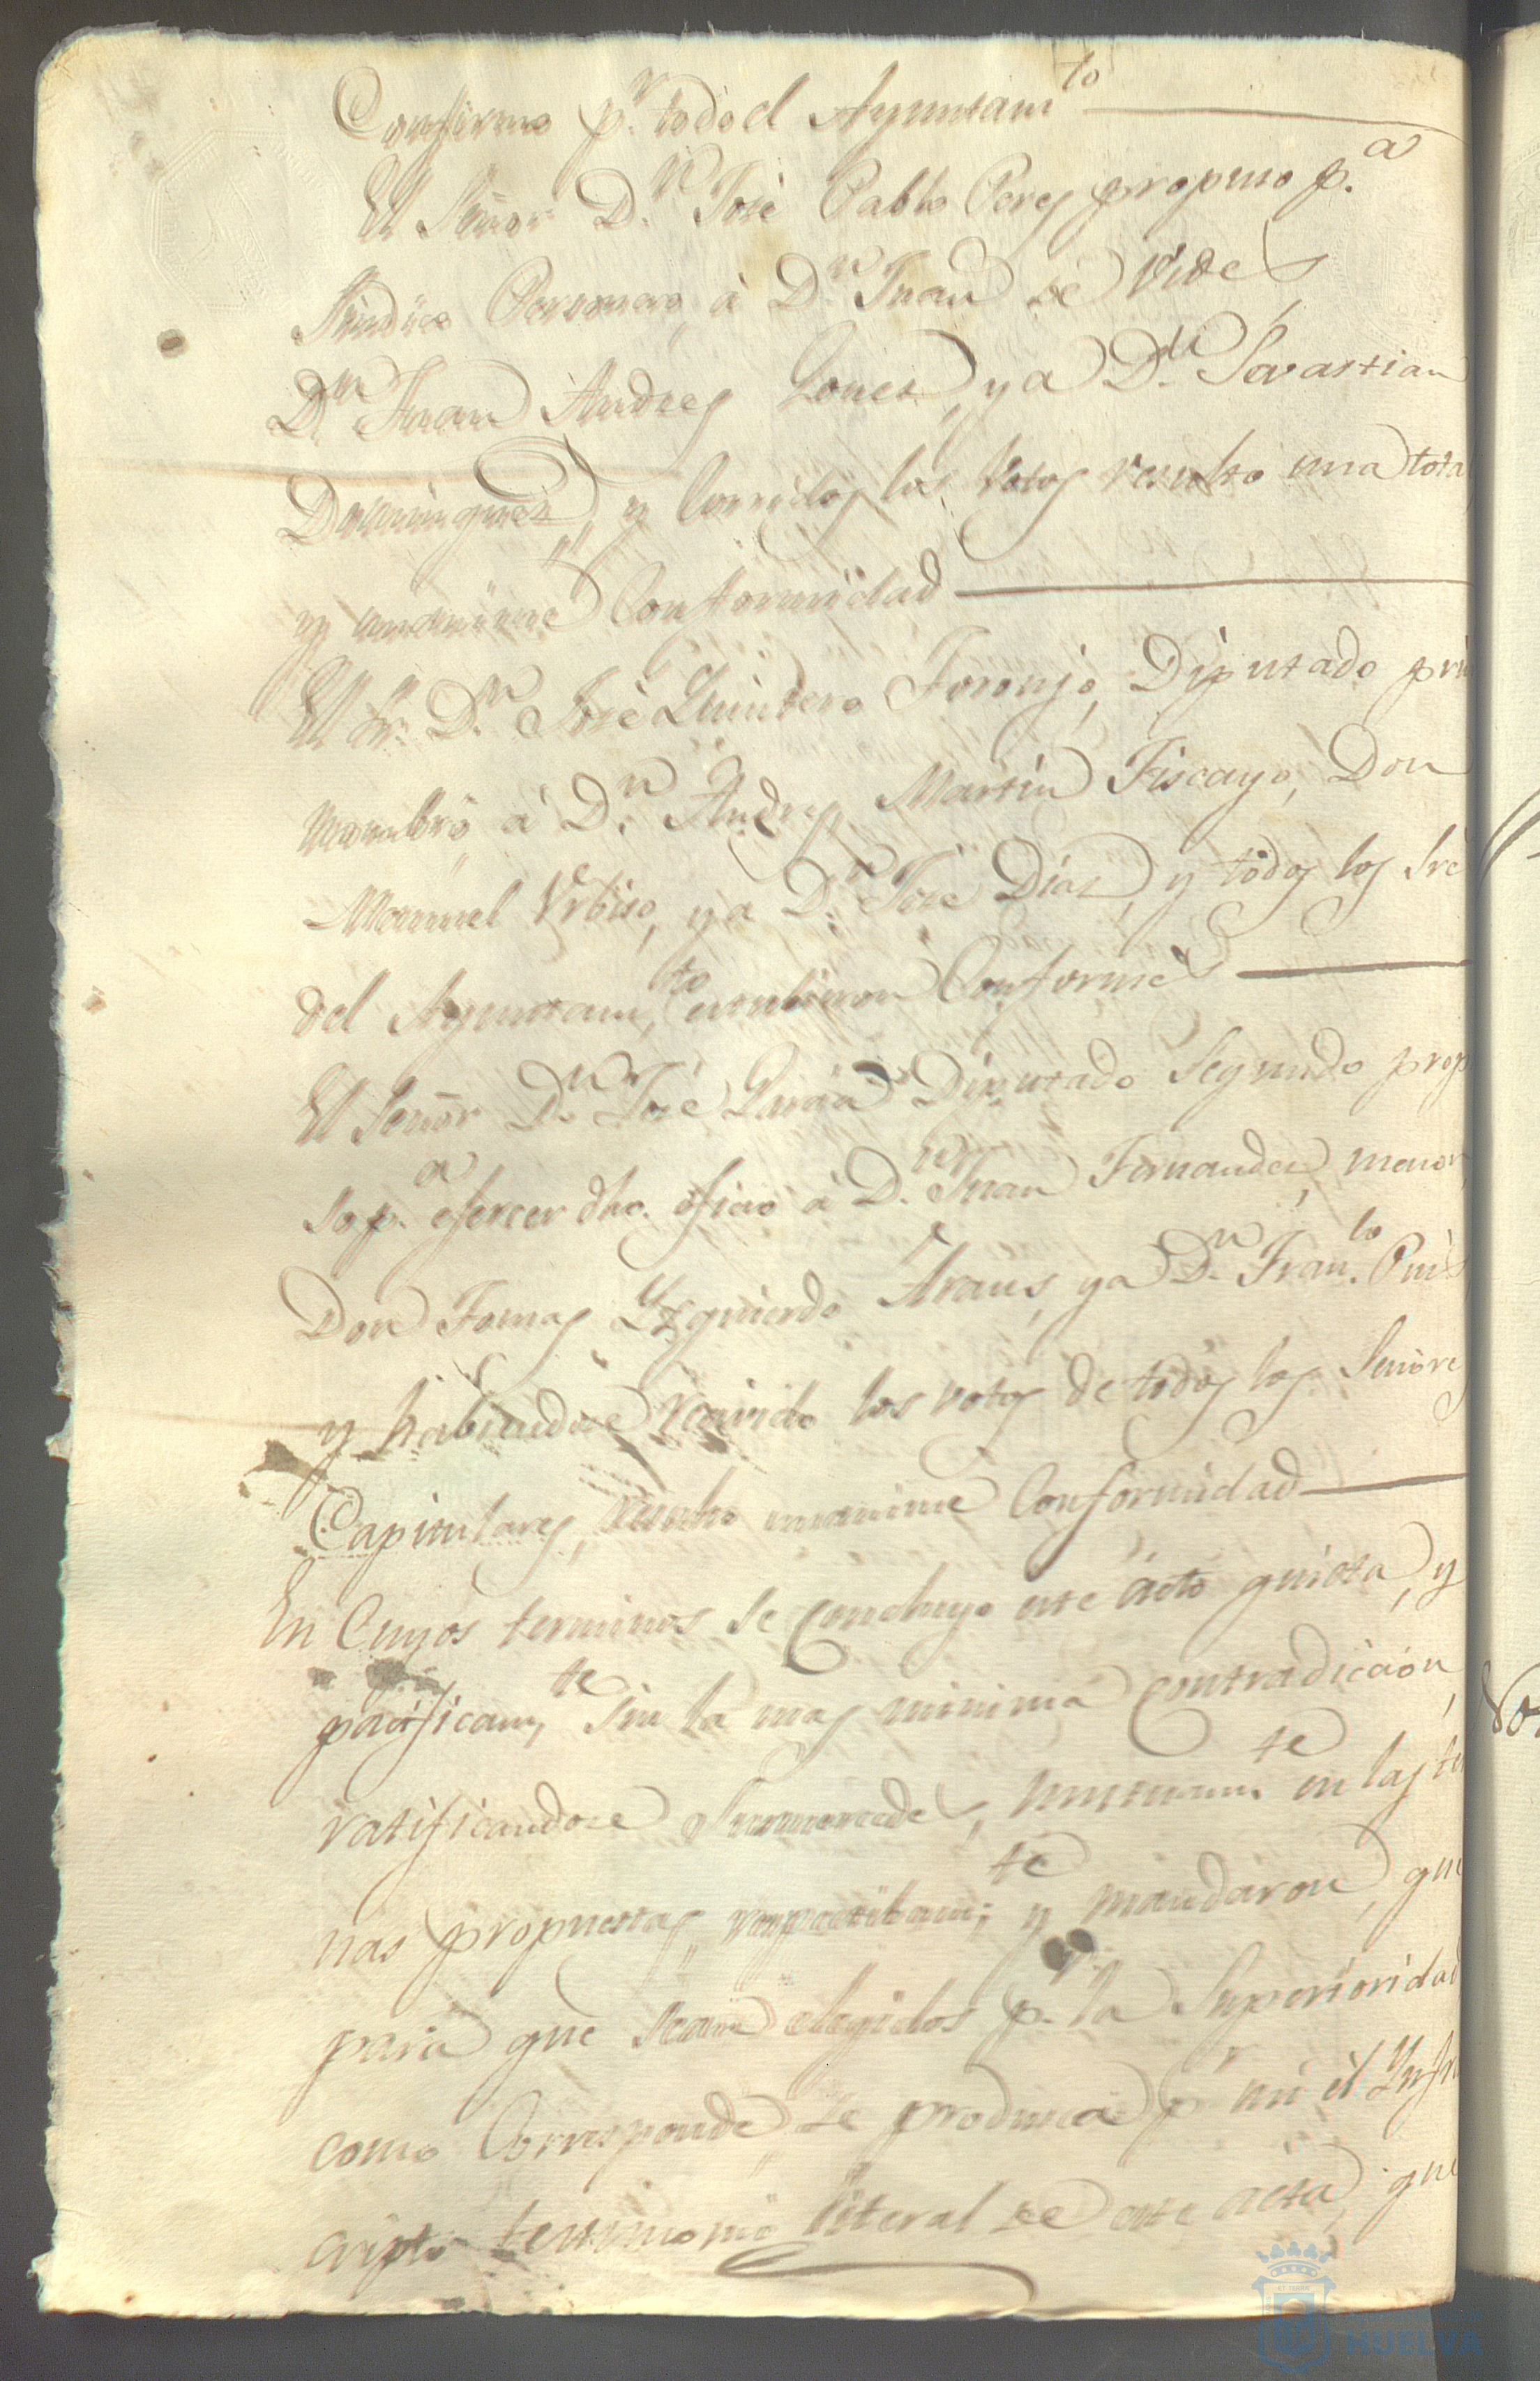 Conforme p.r todo el Ayuntam.to
El Señor D.n José Pablo Perez propuso p.a
Síndico Personero, à D.n Juan de Vides
D.n Juan Andres Gomez, y a D.n Sevastian
Dominguez, y Corridos los Votos resulto una total
y unanime Conformidad
El Sr. D.n José Quintero Toronjo, Diputado pri
nombró à D.n Andres Martin Fiscayo, Don
Manuel Urbiso, y a D.n Jose Diaz, y todos los Sre
del Ayuntam.to estubieron Conformes
El Señor D.n José Garcia Diputado Segundo prop
so p.a ejercer dho. oficio à D.n Juan Fernandez menor,
Don Tomas Yzquierdo Araus, y a D.n Fran.co
y habiendose recivido los votos de todos los Señore
Capitulares, resulto unanime Conformidad
En Cuyos terminos se Concluyo este acto quieta, y
pacificam.te sin la mas minima Contradicion,
ratificandose Sus mercedes, mutuam.te en las ter
nas propuestas, respectibam.te y mandaron, que
para que sean elegidos p.r la Superioridad
como Corresponde, se produsca p.r mi el Ynfra
cripto testimonio literal de este acta, que
HUELVA